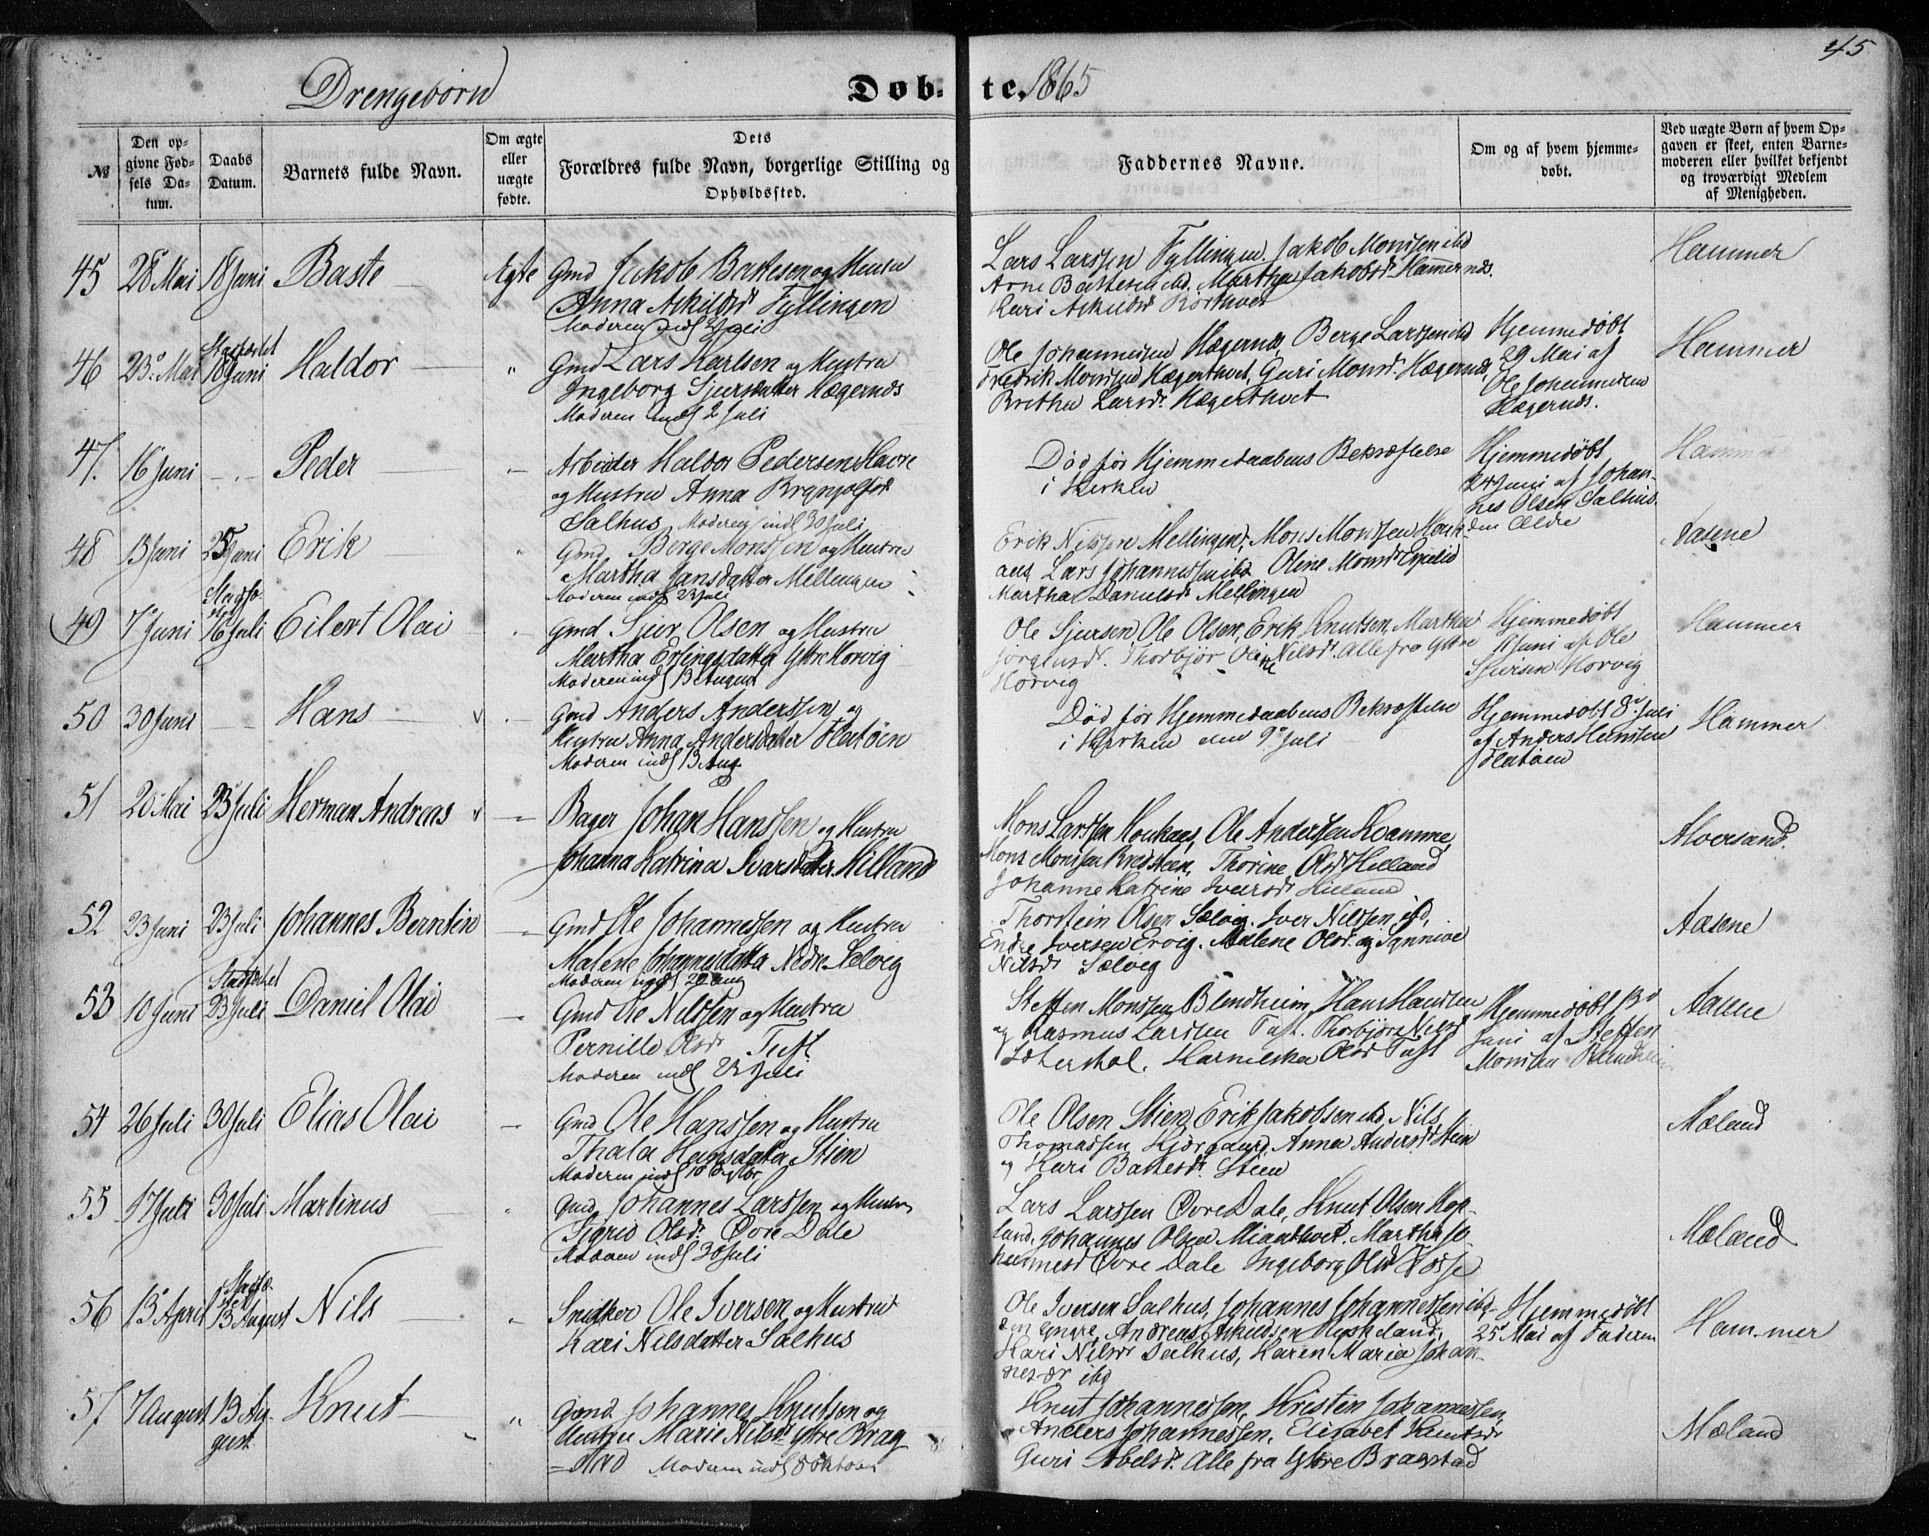 45
Drengebørn
Døbte. 1865
№
Den opgivne Fødsels Datum.
Daabs Datum.
Barnets fulde Navn.
Om ægte eller uægte fødte.
Dets Forældres fulde Navn, borgerlige Stilling og Opholdssted.
Faddernes Navne.
Om og af hvem hjemmedøbt.
Ved uægte Børn af hvem Opgaven er skeet, enten Barnemoderen eller hvilket bekjendt og troværdigt Medlem af Menigheden.
45 28 Mai 18 Juni Baste Ægte Gmd Jakob Bastesen og Hustru
Anna Askildsd. Fyllingen
Moderen indl. 2 Juli
Lars Larssen Fyllingen. Jakob Monssen ibd
Arne Bastesen ibd. Martha Jakobsd. Hammernæs.
Kari Askildsd.
Hammer
46 23 Mai Stadfæstet 18 Juni Haldor " Gmd Lars Karlsen og Hustru
Ingeborg Sjursdatter Hægernæs
Moderen indl. 2 Juli
Ole Johannessen Hægernæs Berge Larssen ibd
Fredrik Monssen Hægerthvet, Guri Monsd. Hægernæs,
Brithe Larsd. Hægerthvet
Hjemmedøbt
29 Mai af
Ole Johannessen
Hægernæs.
Hammer
47. 16 Juni - . - Peder - Arbeider Haldor Pedersen Havre
og Hustru Anna Brynjolfsd.
Salhus Moderen indl 30 Juli
Død før Hjemmedaabens Bekræftelse
i Kirken
Hjemmedøbt
24 Juni af Johan-
nes Olsen Salhus.
den Ældre
Hammer
48 13 Juni 25 Juni Erik " Gmd Berge Monssen og Hustru
Martha Jansdatter Mellingen
Moderen indl 23 Juli
Erik Nilssen Mellingen, Mons Monssen Houk-
aas Lars Johannessen ibd Oline Monsd. Espelid
Martha Danielsd. Mellingen
Aasene
49 7 Juni Stadfæ-
stet 16 Juli Eilert Olai - Gmd Sjur Olsen og Hustru
Martha Erlingsdatter Ytre Horvig
Moderen indl 13 August
Ole Sjursen, Ole Olsen, Erik Knutsen, Martha
Thorbjør Oline Nilsd. Alle fra Ytre
Horvig
Hjemmedøbt
11 Juni af Ole
Sjursen Horvig
Hammer
50 30 Juni - Hans - Gmd Anders Anderssen og
Hustru Anna Andersdatter Flatøen
Moderen indl 13 Aug
Død før Hjemmedaabens Bekræftelse
i Kirken den 9 Juli
Hjemmedøbt 8 Juli
af Anders
Flatøen
Hammer
51 20 Mai 23 Juli Herman Andreas - Bager Johan Hanssen og Hustru
Johanna Katrina Ivarsdatter Hilland
Mons Larssen Houkaas, Ole Anderssen Kvamme,
Mons Monssen, Thorine Olsd Hilland
Johanne Katrine Iversd. Hilland
Alversund.
52 23 Juni 23 Juli Johannes Berntin - Gmd Ole Johannessen og Hustru
Malene Johannesdatter Nedre Selvig
Moderen indl 20 Aug
Thorstein Olsen Sælvig. Iver Nilssen ibd,
Endre Iversen Ervig. Malene Olsd. og Synnive
Nilsd. Sælvig
Aasene
53 10 Juni Stadfæstet 23 Juli Daniel Olai - Gmd Ole Nilssen og Hustru
Pernille Olsd. Tuft
Moderen indl 23 Juli
Steffen Monssen Blindheim, Hans Hanssen
og Rasmus Larssen Tuft. Thorbjør Nilsd
Sæterstøl. Olsd Tuft
Hjemmedøbt 13
Juni af Steffen
Monssen Blindheim
Aasene
54 26 Juli 30 Juli Elias Olai - Gmd Ole Hanssen og Hustru
Thala Hansdatter Stien
Moderen indl 10 Septbr
Ole Olsen Stien, Erik Jakobsen ibd, Nils
Thomassen, Anna Andersd. Stien
og Kari Bastesd. Stien
Mæland
55 17 Juli 30 Juli Martinus " Gmd Johannes Larssen og Hustru
Sigrid Olsd. Øvre Dale
Moderen indl 30 Juli
Lars Larssen Øvre Dale, Knut Olsen Hop-
land, Johannes Olsen Mianthvet. Martha Jo-
hannesd Øvre Dale Ingeborg Olsd Fosse
Mæland
56 15 April Stadfæ-
stet 13 August Nils " Snidker Ole Iversen og Hustru
Kari Nilsdatter Salhus
Ole Iversen Salhus, Johannes Johannessen ibd.
den Yngre, Andreas Askildsen Hyskeland,
Kari Nilsd. Salhus, Karen Maria Johan-
nesdr ibd
Hjemmedøbt
25 Mai af Faderen
Hammer
57 7 August 13 Au-
gust Knut " Gmd Johannes Knutsen og
Hustru Marie Nilsd. Ytre Brag-
stad Moderen indl 8 Oktober
Knut Johannessen, Kristen Johannessen,
Anders Johannessen, Elisabet Knutsd
Guri Abelsd. Alle fra Ytre Bragstad
Mæland